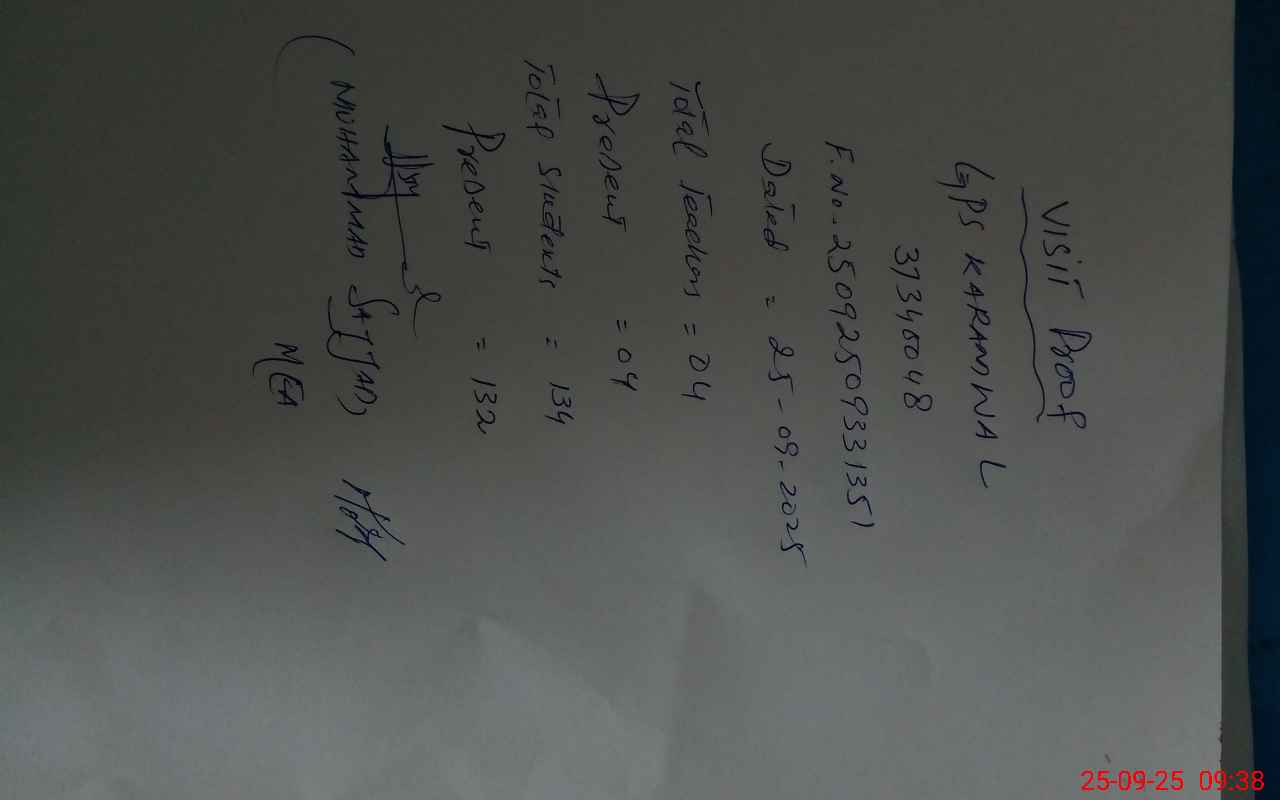 VISIT Proof
GPS KARAMWAL
37340048
F.No. 25092509331351
Dated = 25-09-2025
Total Teachers = 04
Present = 04
Total Students = 134
Present = 132
(MUHAMMAD SAJJAD)
MEA
25-09-25 09:38